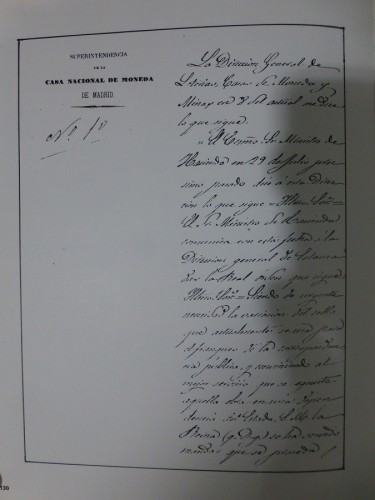 SUPERINTENDENCIA
DE LA
CASA NACIONAL DE MONEDA
DE MADRID.
Nº 1º
La Direccion General de
Loterias, Casas de Moneda y
Minas en 2 del actual me dice
lo que sigue.
"El Excmo. Sr. Ministro de
Hacienda en 29 de Julio pro-
simo pasado dice á esta Direc-
cion lo que sigue = Illmo. Sor. =
El Sr. Ministro de Hacienda
comunica con esta fecha á la
Direccion general de
la Real orden que sigue
Illmo. Sor. = Siendo de urgente
necesidad la variacion del sello
que actualmente se usa para
el franqueo de la correspondencia
pública, y conviniendo al
mejor servicio que se ejecute
aquella obra en una depen-
dencia del Estado, S. M. la
Reina (q. D. g.) se ha servido
mandar que se proceda
130